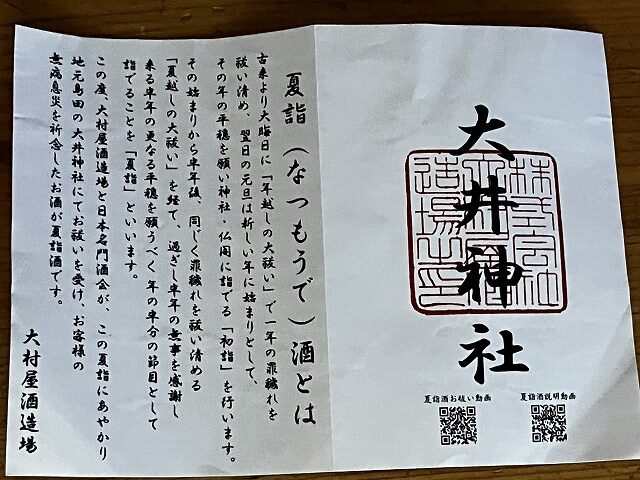 大井神社
株式会社
大村屋酒
造場之印
夏詣酒お祓い動画
夏詣酒説明動画
夏詣（なつもうで）酒とは
古来より大晦日に「年越しの大祓い」で一年の罪穢れを
祓い清め、翌日の元旦は新しい年に始まりとして、
その年の平穏を願い神社・仏閣に詣でる「初詣」を行います。
その始まりから半年後、同じく罪穢れを祓い清める
「夏越しの大祓い」を経て、過ぎし半年の無事を感謝し
来る半年の更なる平穏を願うべく年の半分の節目として
詣でることを「夏詣」といいます。
この度、大村屋酒造場と日本名門酒会が、この夏詣にあやかり
地元島田の大井神社にてお祓いを受け、お客様の
無病息災を祈念したお酒が夏詣酒です。
大村屋酒造場